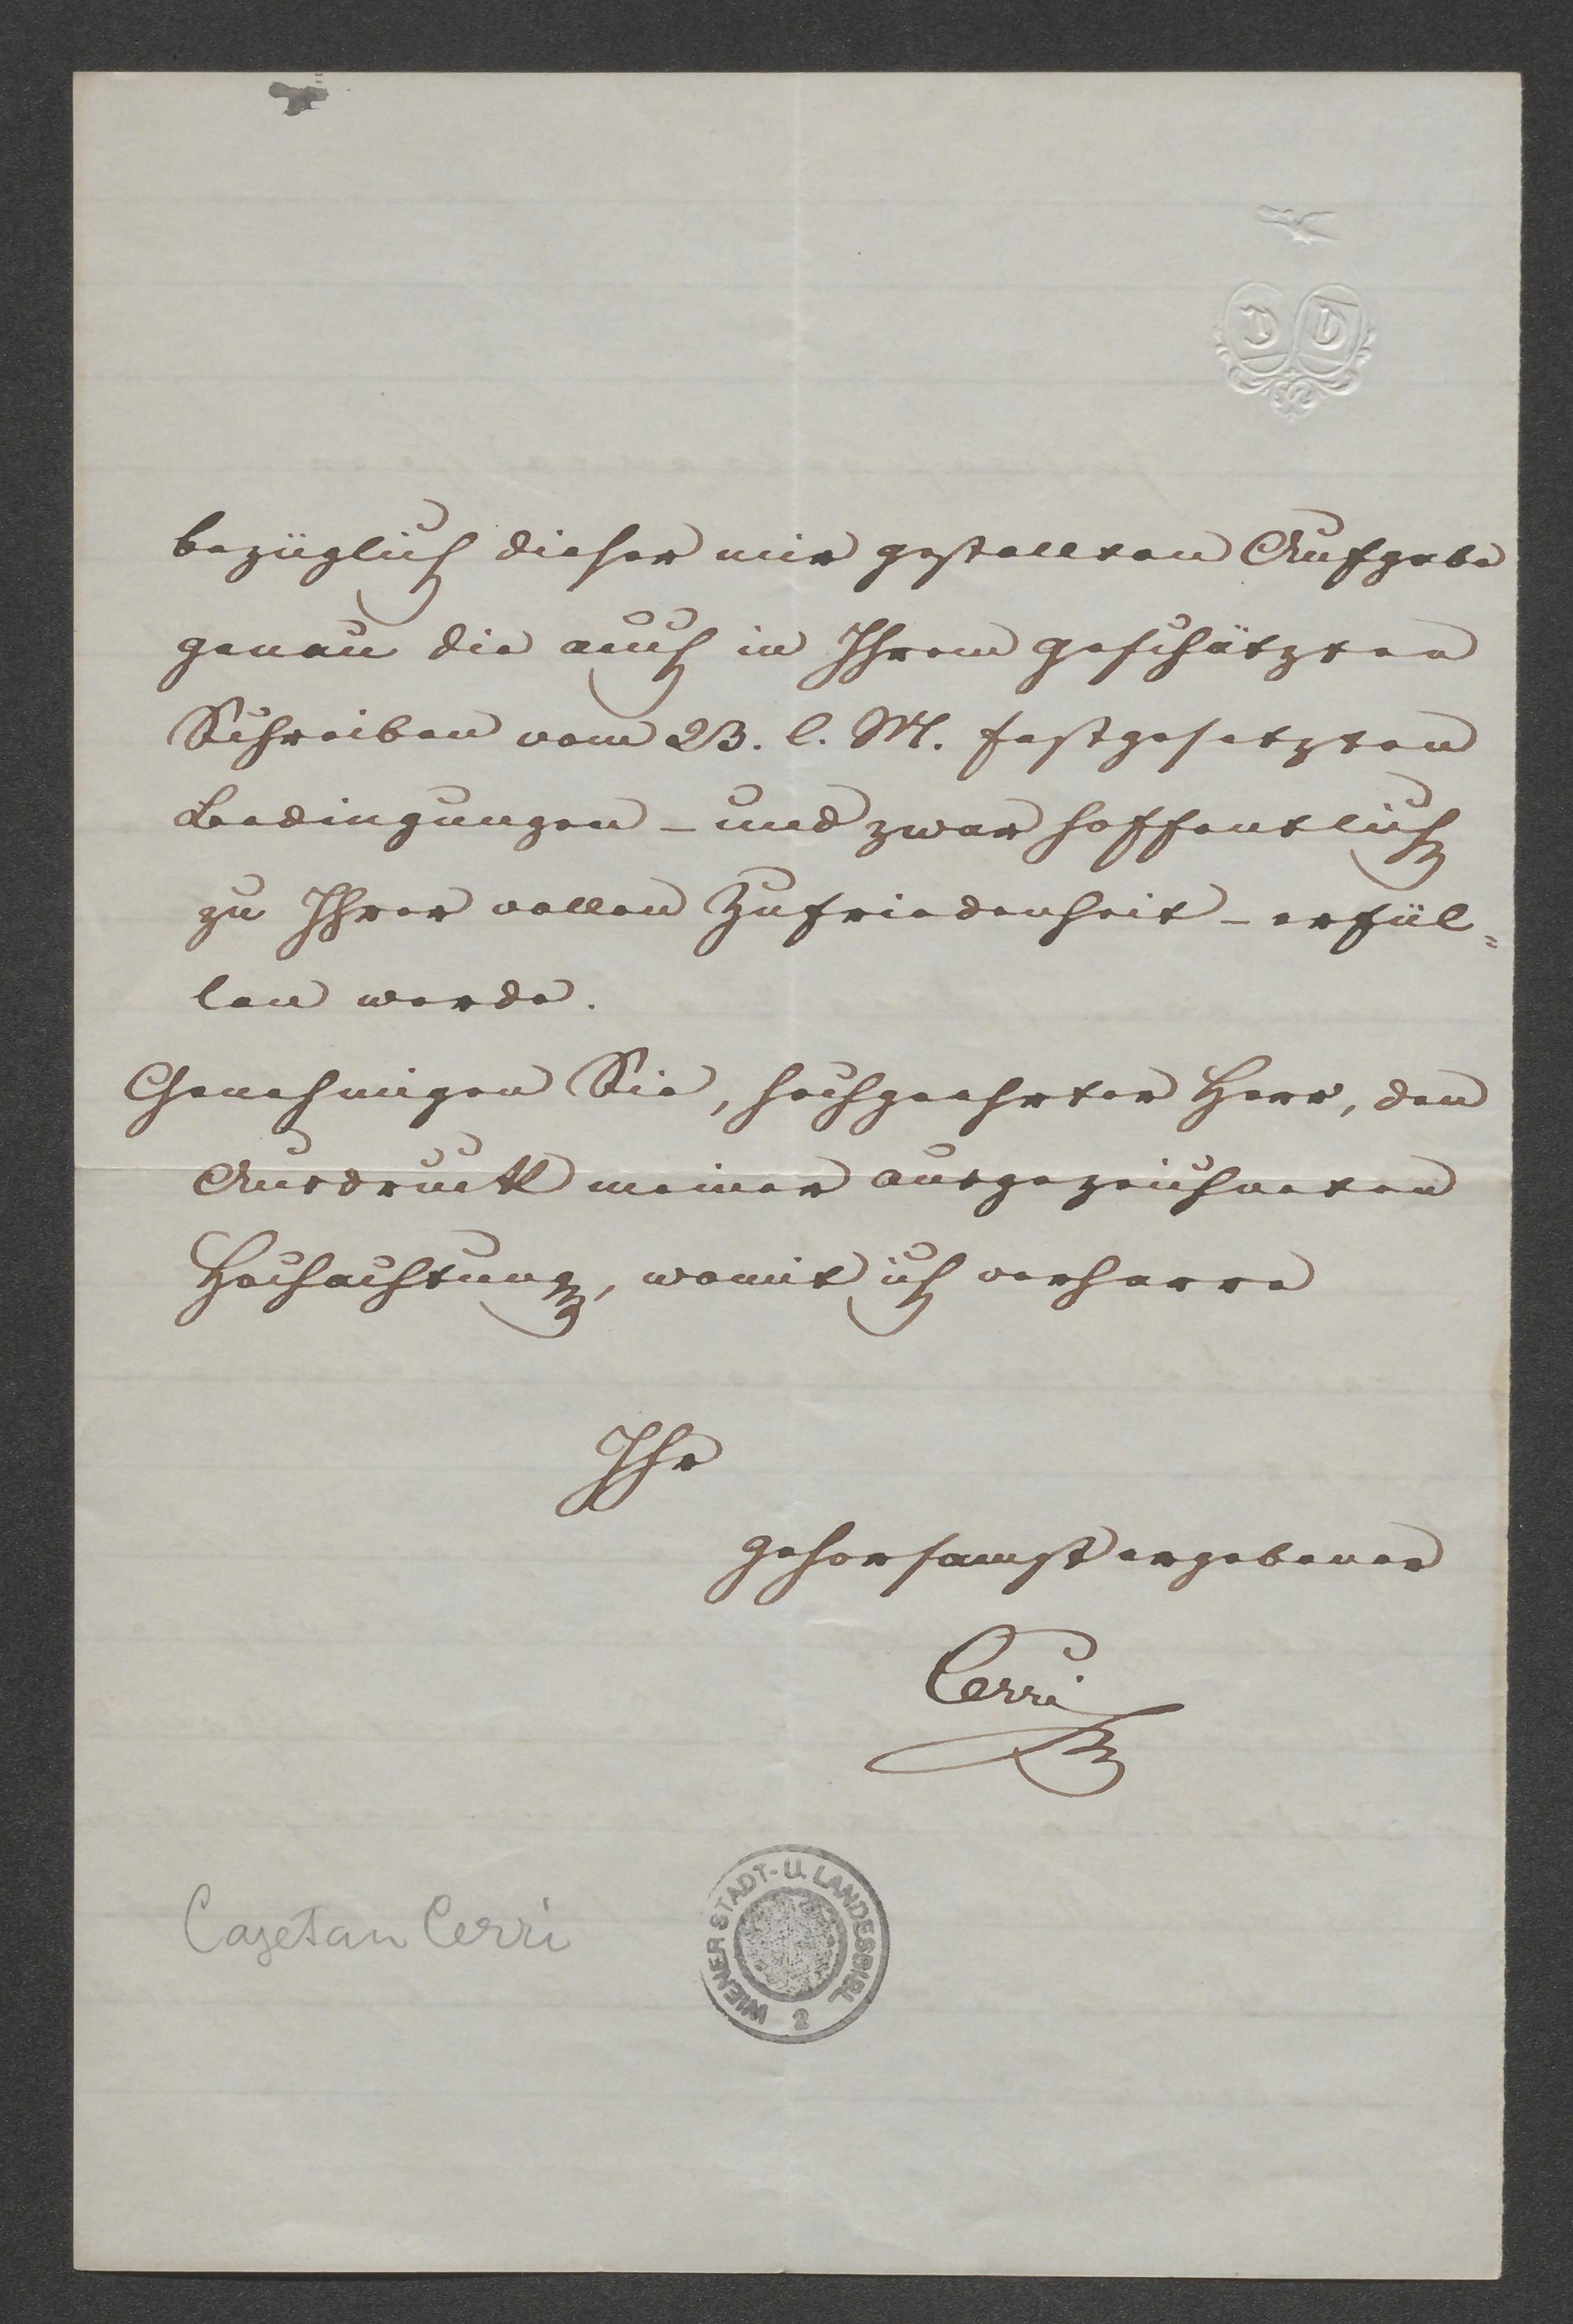 bezüglich dieser mir gestellten Aufgabe
genau die auch in Ihrem geschätzten
Schreiben vom 23. l. M. festgesetzten
Bedingungen – und zwar hoffentlich
zu Ihrer vollen Zufriedenheit – erfül=
len werde.
Genehmigen Sie, hochgeehrter Herr, den
Ausdruck meiner ausgezeichneten
Hochachtung, womit ich verharre
Ihr
gehorsamst ergebener
Cerri
Cajetan Cerri
WIENER STADT- U. LANDESBIBL.
2